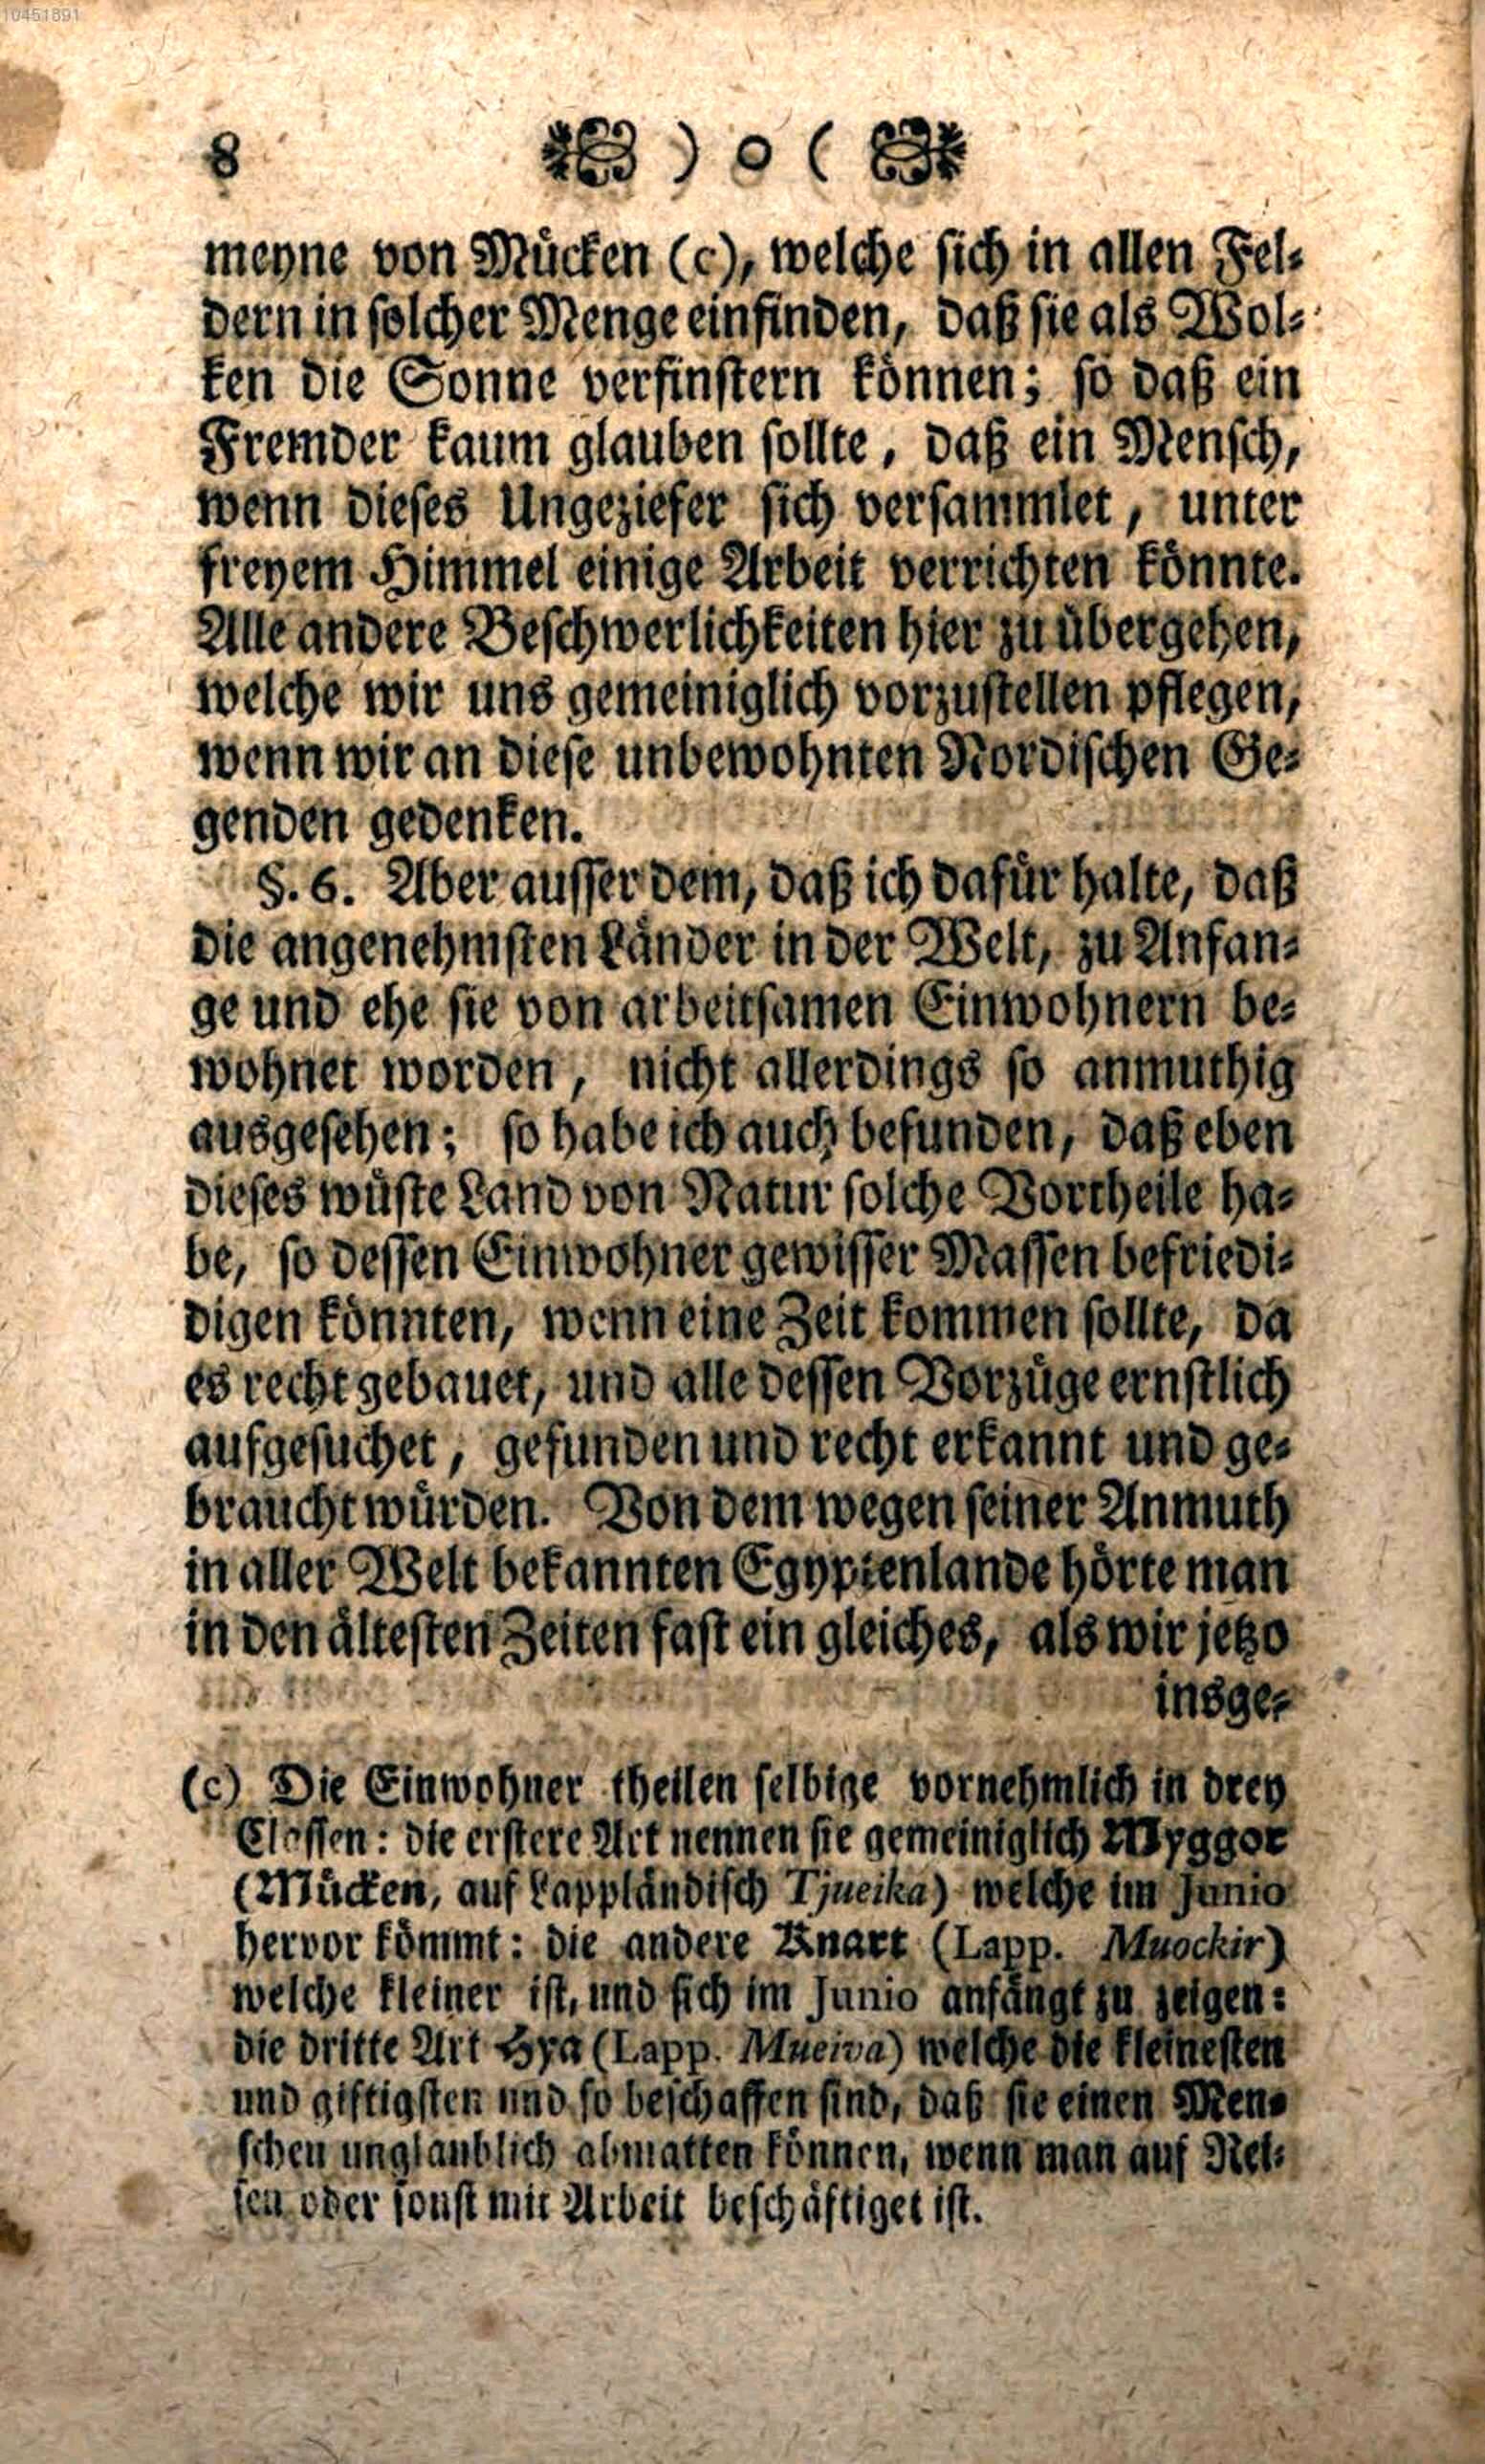 10451891
8 ) o (
meyne von Mücken (c), welche sich in allen Fel-
dern in solcher Menge einfinden, daß sie als Wol-
ken die Sonne verfinstern können; so daß ein
Fremder kaum glauben sollte, daß ein Mensch,
wenn dieses Ungeziefer sich versammlet, unter
freyem Himmel einige Arbeit verrichten könnte.
Alle andere Beschwerlichkeiten hier zu übergehen,
welche wir uns gemeiniglich vorzustellen pflegen,
wenn wir an diese unbewohnten Nordischen Ge-
genden gedenken.
§. 6. Aber ausser dem, daß ich dafür halte, daß
die angenehmsten Länder in der Welt, zu Anfan-
ge und ehe sie von arbeitsamen Einwohnern be-
wohnet worden, nicht allerdings so anmuthig
ausgesehen; so habe ich auch befunden, daß eben
dieses wüste Land von Natur solche Vortheile ha-
be, so dessen Einwohner gewisser Massen befriedi-
digen könnten, wenn eine Zeit kommen sollte, da
es recht gebauet, und alle dessen Vorzüge ernstlich
aufgesuchet, gefunden und recht erkannt und ge-
braucht würden. Von dem wegen seiner Anmuth
in aller Welt bekannten Egyptenlande hörte man
in den ältesten Zeiten fast ein gleiches, als wir jetzo
insge-
(c) Die Einwohner theilen selbige vornehmlich in drey
Classen: die erstere Art nennen sie gemeiniglich Myggor
(Mücken, auf Lappländisch Tjueika) welche im Junio
hervor kömmt: die andere Knart (Lapp. Muockir)
welche kleiner ist, und sich im Junio anfängt zu zeigen:
die dritte Art Hya (Lapp. Mueiva) welche die kleinesten
und giftigsten und so beschaffen sind, daß sie einen Men-
schen unglaublich abmatten können, wenn man auf Rei-
sen oder sonst mit Arbeit beschäftiget ist.